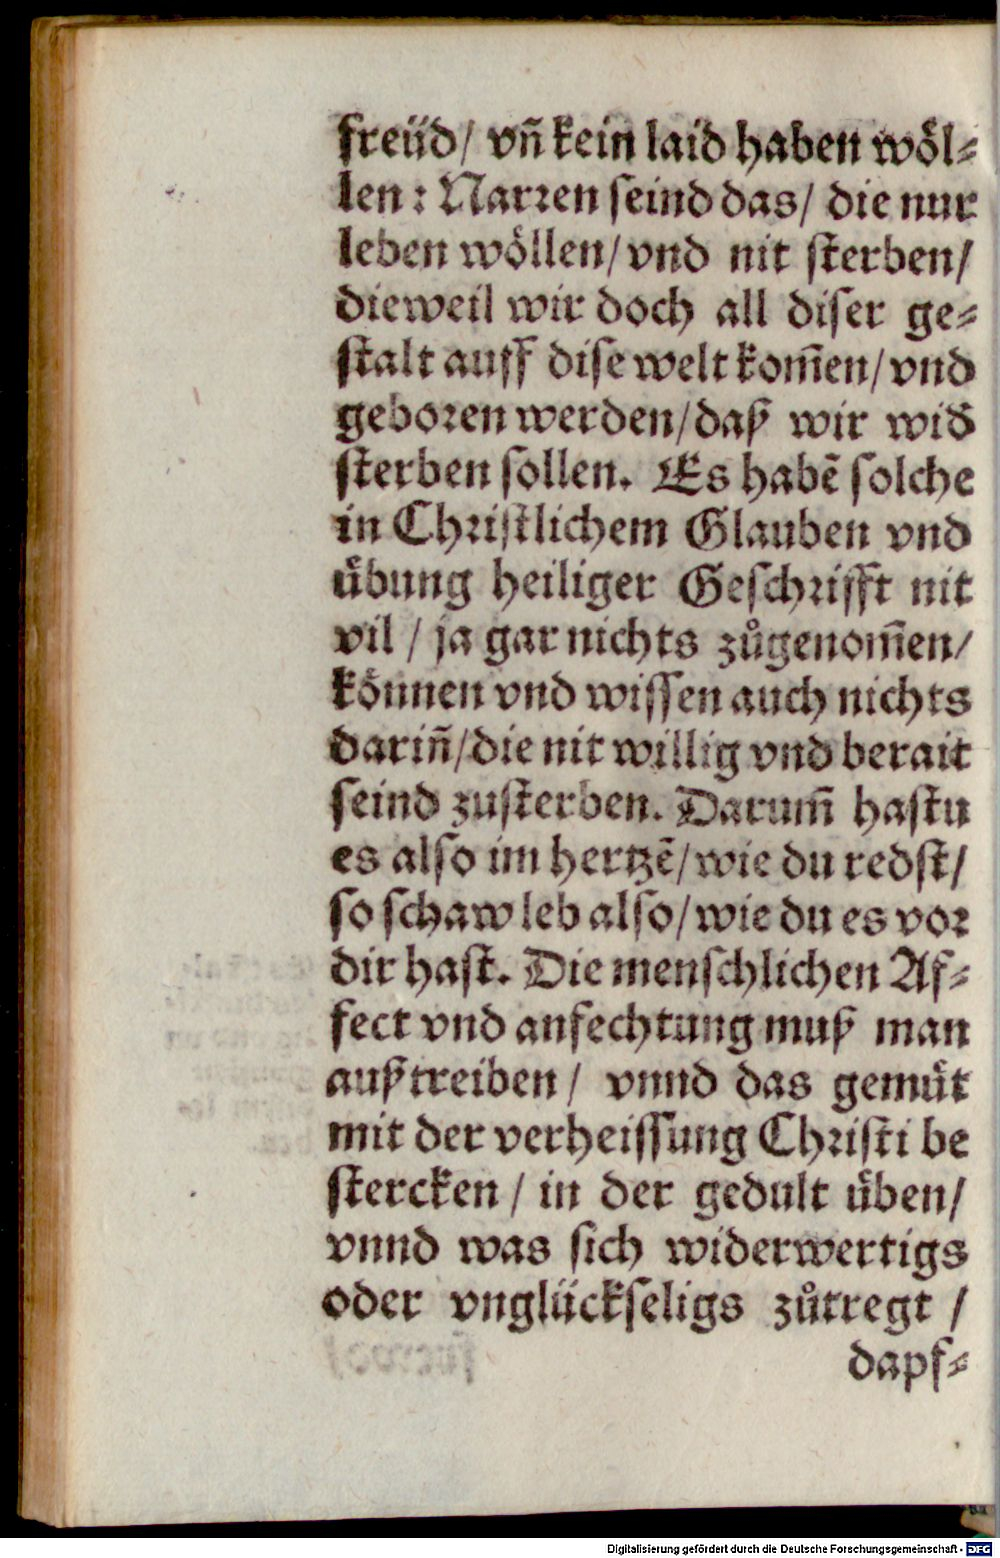 freüd/ vñ kein laid haben wöl⸗
len: Narꝛen ſeind das/ die nur
leben wöllen/ vnd nit ſterben/
dieweil wir doch all diſer ge⸗
ſtalt auff diſe welt kom̃en/ vnd
geboꝛen werden/ daß wir wid̕
ſterben ſollen. Es habẽ ſolche
in Chꝛiſtlichem Glauben vnd
uͤbung heiliger Geſchꝛifft nit
vil / ja gar nichts zůgenom̃en/
können vnd wiſſen auch nichts
dariñ/ die nit willig vnd berait
ſeind zuſterben. Darum̃ haſtu
es alſo im hertzẽ/ wie du redſt/
ſo ſchaw leb alſo/ wie du es voꝛ
dir haſt. Die menſchlichen Af⸗
fect vnd anfechtung muß man
außtreiben / vnnd das gemuͤt
mit der verheiſſung Chꝛiſti be
ſtercken / in der gedult uͤben/
vnnd was ſich widerwertigs
oder vnglückſeligs zůtregt /
dapf⸗
Digitalisierung gefördert durch die Deutsche Forschungsgemeinschaft - DFG